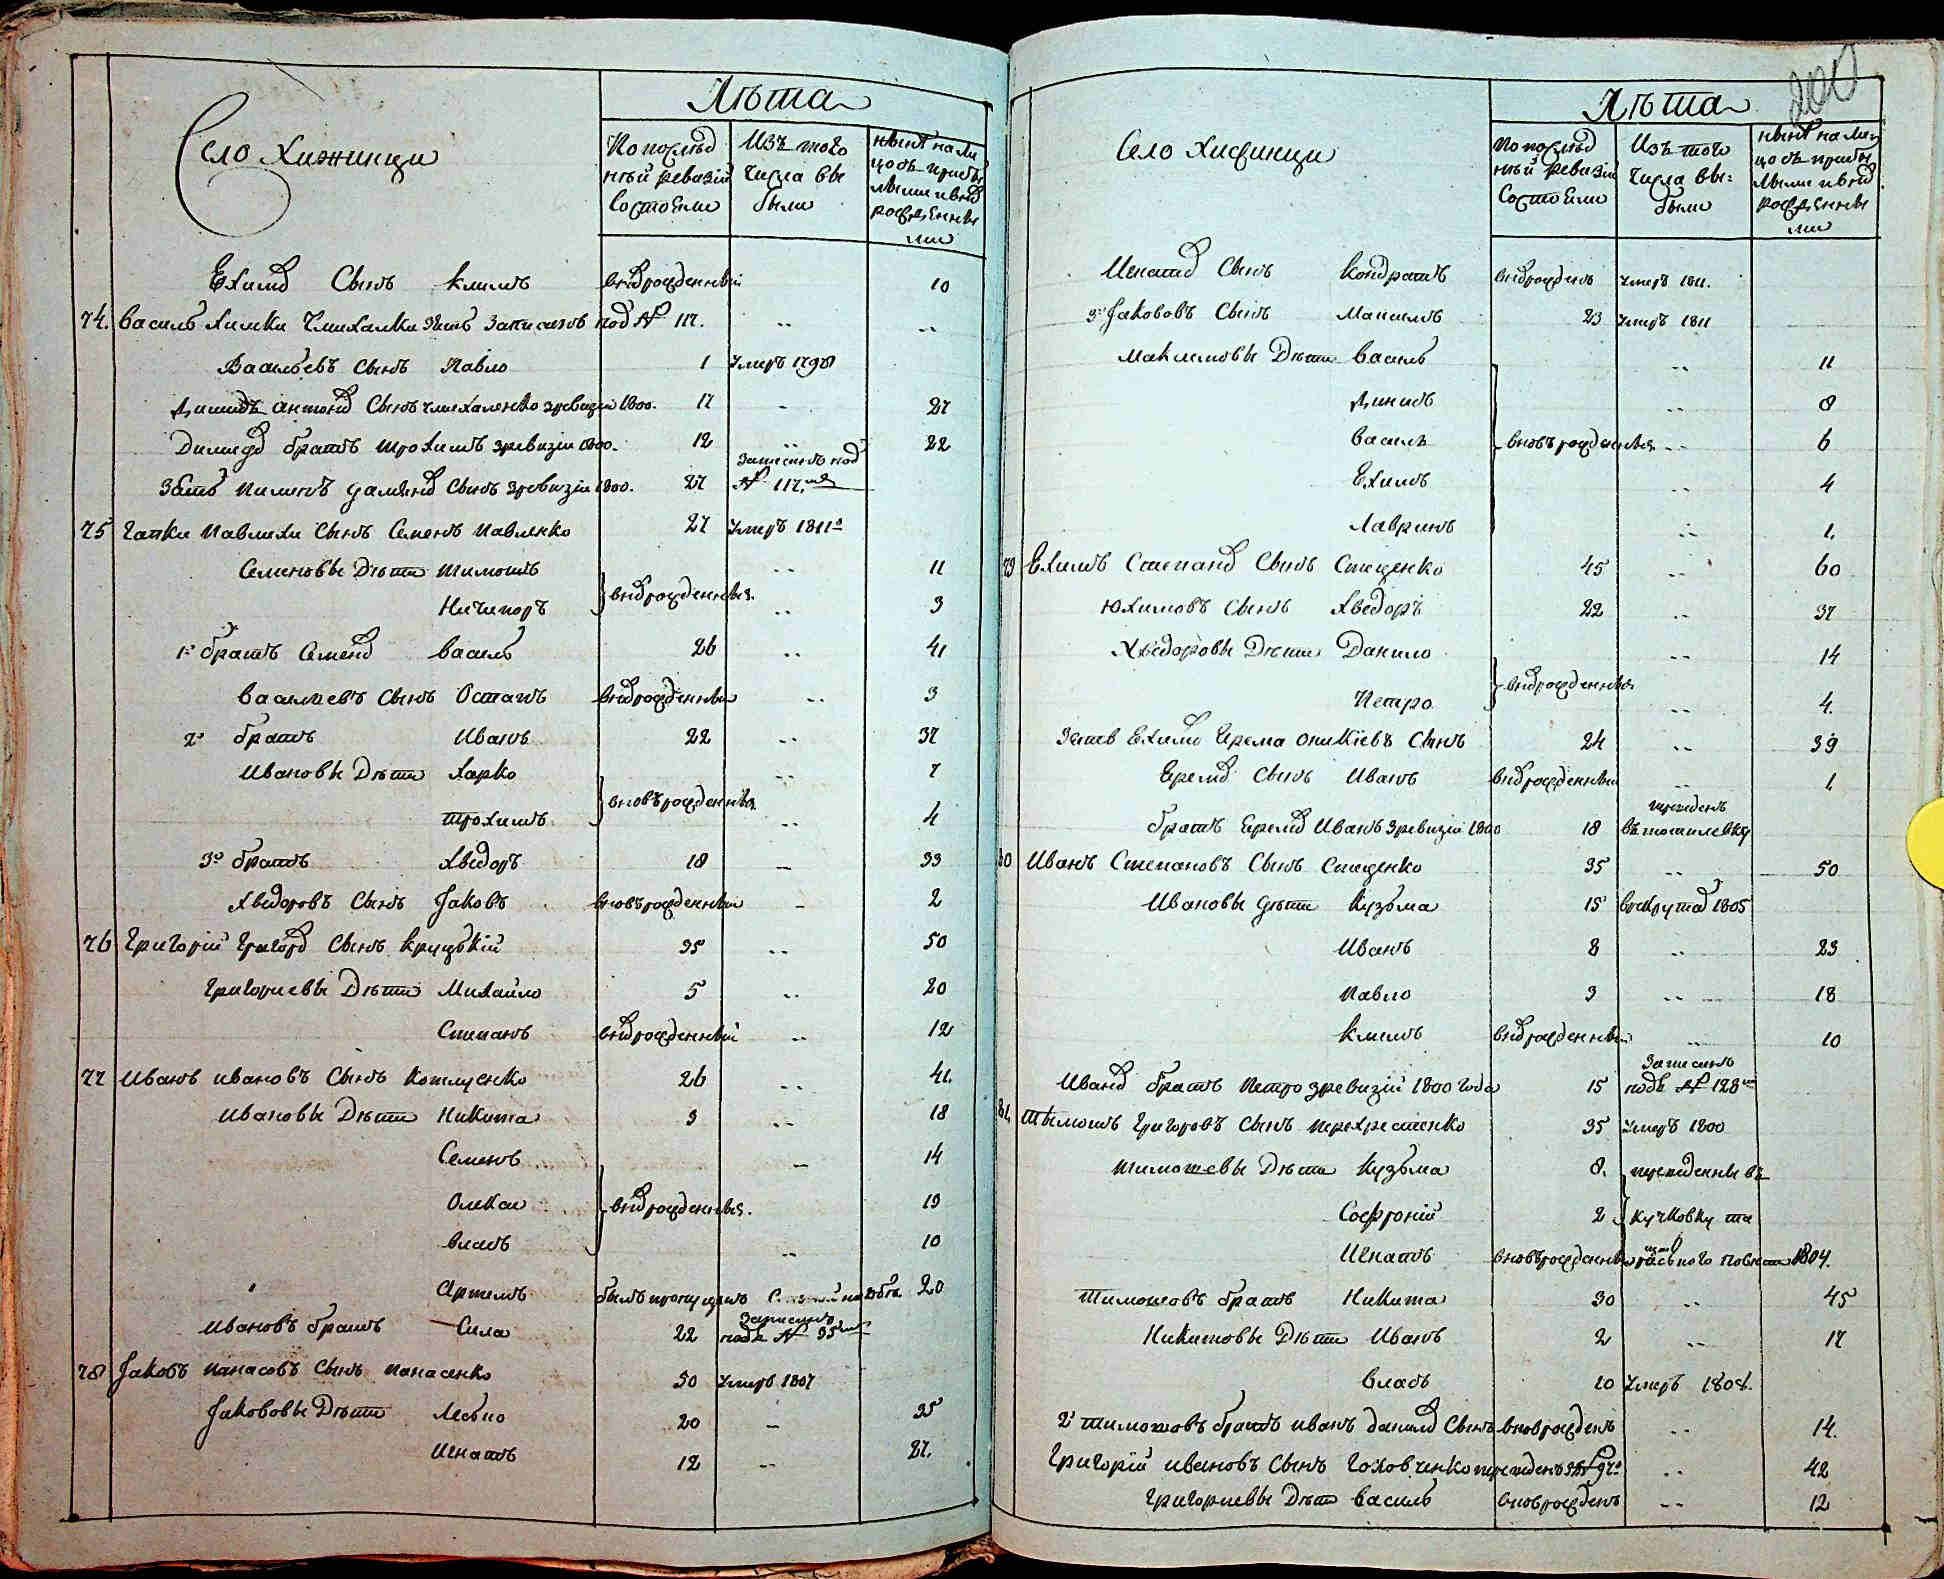 Село Хижинци
Лѣта
По послѣд
ней ревизіи
состояли
Изъ того
числа вы
были
нынѣ на ли
цо съ прибы
лыми и внов
рожденны
ми
Ехимов Сынъ Климъ вноврожденный 10
74. Василь Химки Чмихалки зять записанъ под № 117.
Васильевъ Сынъ Павло 1 умеръ 1798
антонов Сынъ Чмихаленко зревизіи 1800. 17 27
брать Трохимъ зревизіи 1800. 12 22
зять Пилипъ Сынъ зревизіи 1800. 27 записанъ под № 117.
75 Гапки Павлихи Сынъ Семенъ Павленко 27 умеръ 1811
Семеновы Дѣти Тимошъ 11
Ничипоръ вновьрожденныя. 3
1й братъ Семенов Василь 26 41
Васильевъ Сынъ Остапъ вновьрожденный 3
2й братъ Иванъ 22 37
Ивановы Дѣти Харко 7
Трохимъ вновьрожденныя 4
3й братъ Хведоръ 18 33
Хведоровъ Сынъ Јаковъ вновьрожденный 2
76 Григорій Григоров Сынъ Круцькій 35 50
Григориевы Дѣти Михайло 5 20
Степанъ вновьрожденный 12
77 Иванъ Ивановъ Сынъ Котлученко 26 41.
Ивановы Дѣти Никита 3 18
Семенъ 14
Олекса вновьрожденныя. 13
Власъ 10
Артемъ былъ пропущенъ 20
Ивановъ братъ Сила 22 записанъ подъ № 35
78 Јаковъ Панасовъ Сынъ Панасенко 50 умеръ 1807
Јакововы Дѣти Лесько 20 35
Игнатъ 12 27.
200
Село Хижинци
Лѣта
По послѣд
ней ревизіи
состояли
Изъ того
числа вы=
были
нынѣ на ли
цо съ прибы
лыми и внов
рожденны
ми
Игнатов Сынъ Кондратъ вновьрожденъ умеръ 1811.
3й Јакововъ Сынъ Максимъ 23 умеръ 1811
Максимовы Дѣти Василь 11
8
Василь вновьрожденныя 6
Ехимъ 4
Лавринъ 1.
79 Ехимъ Степанов Сынъ Стеценко 45 60
Юхимовъ Сынъ Хведоръ 22 37
Хведоровы Дѣти Данило 14
Петро вновьрожденныя 4.
зятев Ехимов Ерема Оникіевъ Сынъ 24 39
Еремов Сынъ Иванъ вновьрожденный 1
братъ Еремов Иванъ зревизіи 1800 18
80 Иванъ Степановъ Сынъ Стеценко 35 50
Ивановы дѣти Кузьма 15 врекрутах 1805
Иванъ 8 23
Павло 3 18
Климъ вновьрожденный 10
Иванов братъ Петро зревизіи 1800 года 15 записанъ подъ № 128
81. Тымошъ Григоровъ Сынъ Перехрестенко 35 умеръ 1800
Тимошевы Дѣти Кузьма 8.
Софроній 2 Кучковку
Игнатъ вновьрожденный повета 1804.
Тимошовъ братъ Никита 30 45
Никитовы Дѣти Иванъ 2 17
Власъ 10 умеръ 1808.
2й Тимошовъ братъ Иванъ Данилов Сынъ вновьрожденъ 14.
Григорій Ивановъ Сынъ 42
Григориевы Дѣти Василь вновьрожденъ 12